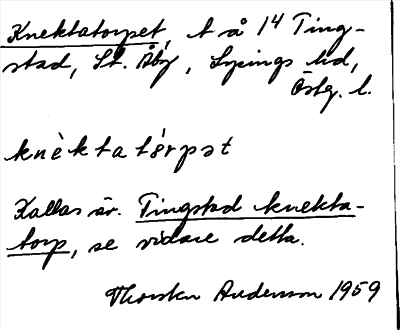 Knektatorpet, t å 14 Ting-
stad, St. Åby, Lysings hd,
Östg. l.
knèktatòrpət
Kallas äv. Tingstad knekta-
torp, se vidare detta.
Thorsten Andersson 1959